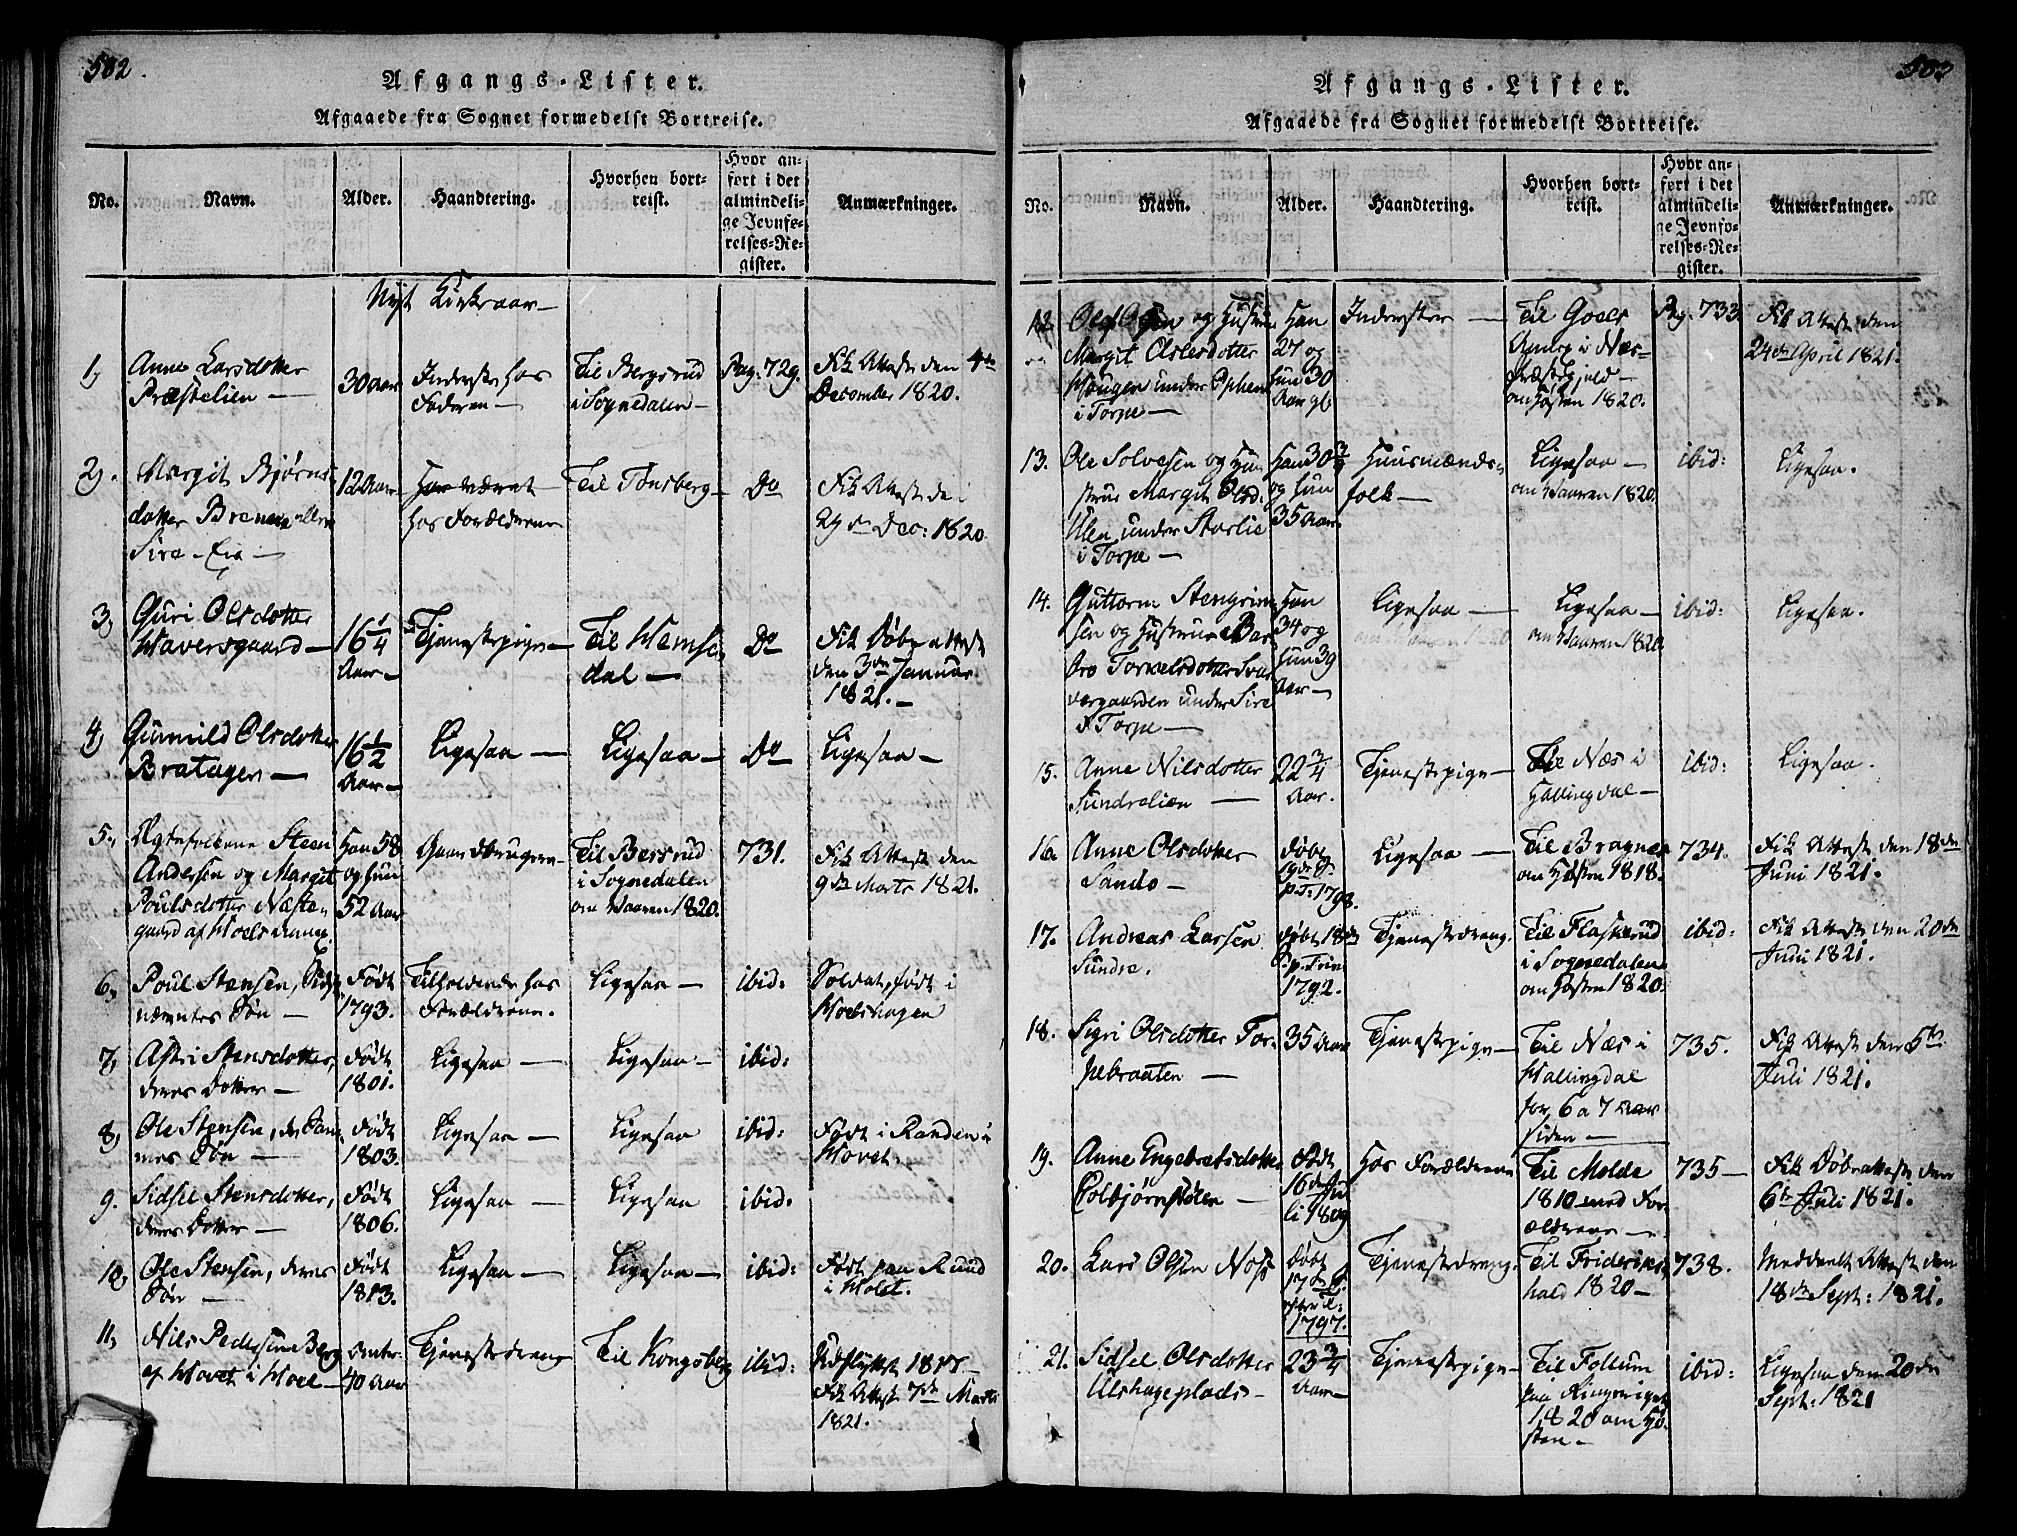 502.
Afgangs-Lister.
Afgaaede fra Sognet formedelst Bortreise.
No.
Navn.
Alder.
Haandtering.
Hvorhen bort-
reist.
Hvor an-
ført i det
almindeli-
ge Jevnfø-
relses-Re-
gister.
Anmærkninger.
Nyt Kirkeaar —
1,
Anne Larsdotter
Præstelien —
30 Aar
Inderste hos
Faderen —
Til Bergsrud
i Sognedalen —
Pag: 729.
Fik Attest den 4de
December 1820.
2).
Margit Bjørns
dotter Brenna
Sire-Eie —
12 Aar
Har været
hos Forældrene
Til Tønsberg —
Do
Fik Attest de
29de Dec: 1820.
3,
Guri Olsdotter
Haversgaard —
16 1/4
Aar —
Tjenestepige —
Til Hemse
dal —
Do
Fik Døbeattest
den 3de Januar
1821. —
4,
Gunnild Olsdotter
Bratagen —
16 1/2
Aar —
Ligesaa —
Ligesaa —
Do
Ligesaa —
5.,
Ægtefolkene Steen
Andersen og Margit
Poulsdotter Næste-
gaard af Hoels Annex.
Han 58
og hun
52 Aar
Gaardbrugere —
Til Bersrud
i Sognedalen
om Vaaren 1820.
731.
Fik Attest den
9de Marts 1821.
6,
Poul Stensen,
nævntes Søn —
Født
1793.
Tilholdende hos
Forældrene.
Ligesaa —
ibid:
Soldat, født i
Hoelshagen
7,
Astri Stensdotter,
deres Dotter —
Født
1801.
Ligesaa —
Ligesaa —
ibid:
8,
Ole Stensen, de Sam-
mes Søn —
Født
1803.
Ligesaa —
Ligesaa
ibid:
Født i Randen i
Hovet.
9.
Sidsel Stensdotter,
deres Dotter —
Født
1806.
Ligesaa —
Ligesaa
ibid:
10,
Ole Stensen, deres
Søn —
Født
1813.
Ligesaa —
Ligesaa —
ibid:
Født paa Ruud
i Holet.
11,
Nils Pedersen Berg
af Hovet i Hoel —
40 Aar
Tjenestedreng
Til Kongsberg
ibid:
Udflyttet
Fik Attest 7de Marts
1821.
503
Afgangs-Lister.
Afgaaede fra Sognet formedelst Bortreise.
No.
Navn.
Alder.
Haandtering.
Hvorhen bort-
reist.
Hvor an-
ført i det
almindeli-
ge Jevnfø-
relses-Re-
gister.
Anmærkninger.
12.
Ole Olsen og Hustru
Margit Olslesdotter
Haugen under Ophem
i Torpe —
Han
27 og
hun 30
Aar gl.
Inderster —
Til Goses
i Næs-
Præstegjeld —
om Høsten 1820.
Pag. 733
Fik Attest den
24de April 1821.
13.
Ole Solvesen og Hu
strue Margit Olsd:
Ulen under Storlie
i Torpe —
Han 30 3/4
og hun
35 Aar
Huusmænds-
folk —
Ligesaa —
om Vaaren 1820.
ibid:
Ligesaa.
14.
Guttorm Stengrim
sen og Hustrue Bar
bro Torkelsdotter Svar
vergaarden under Sire
i Torpe —
Han
34 og
hun 39
Aar —
Ligesaa —
Ligesaa —
om Vaaren 1820.
ibid:
Ligesaa.
15.
Anne Nilsdotter
Sundrelien —
22 3/4
Aar.
Tjenestepige —
Til Næs i
Hallingdal —
ibid:
Ligesaa.
16.
Anne Olsdotter
Sando —
døbt
19de S.
p. T: 1798.
Ligesaa —
Til Bragnes
om Høsten 1818.
734.
Fik Attest den 18de
Juni 1821.
17.
Andreas Larsen
Sundre.
døbt 18de
S. p. Trin
1792.
Tjenestedreng.
Til Flaskerud
i Sognedalen
om Høsten 1820.
ibid:
Fik Attest den 20de
Juni 1821.
18.
Sigri Olsdotter Tor-
pebraaten —
35 Aar
Tjenestepige —
Til Næs i
Hallingdal
for 6 a 7 Aar
siden —
735.
Fik Attest den 5te
Juli 1821.
19.
Anne Engebretsdotter
Colbjørnstølen —
Født
16de Ju
li 1809
Hos Forældrene
Til Molde
1810 med For
ældrene —
735 —
Fik Døbeattest den
6te Juli 1821.
20.
Lars Olsen Noss
Døbt
17de S.
efter T:
1797.
Tjenestedreng.
Til Frideriks
hald 1820 —
738.
Meddeelt Attest den
18de Sept: 1821.
21.
Sidsel Olsdotter
Ulshageplads —
23 3/4
Aar —
Tjenestepige —
Til Follum
paa Ringeriget
1820 om Hø-
sten —
ibid:
Ligesaa den 20de
Sept: 1821